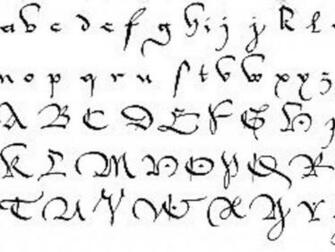 a b c d e f g h i j j k l
n o p q r u ſ t v w x y z
A B C D E F G H
K L M N O P Q R
T U V W X Y Z